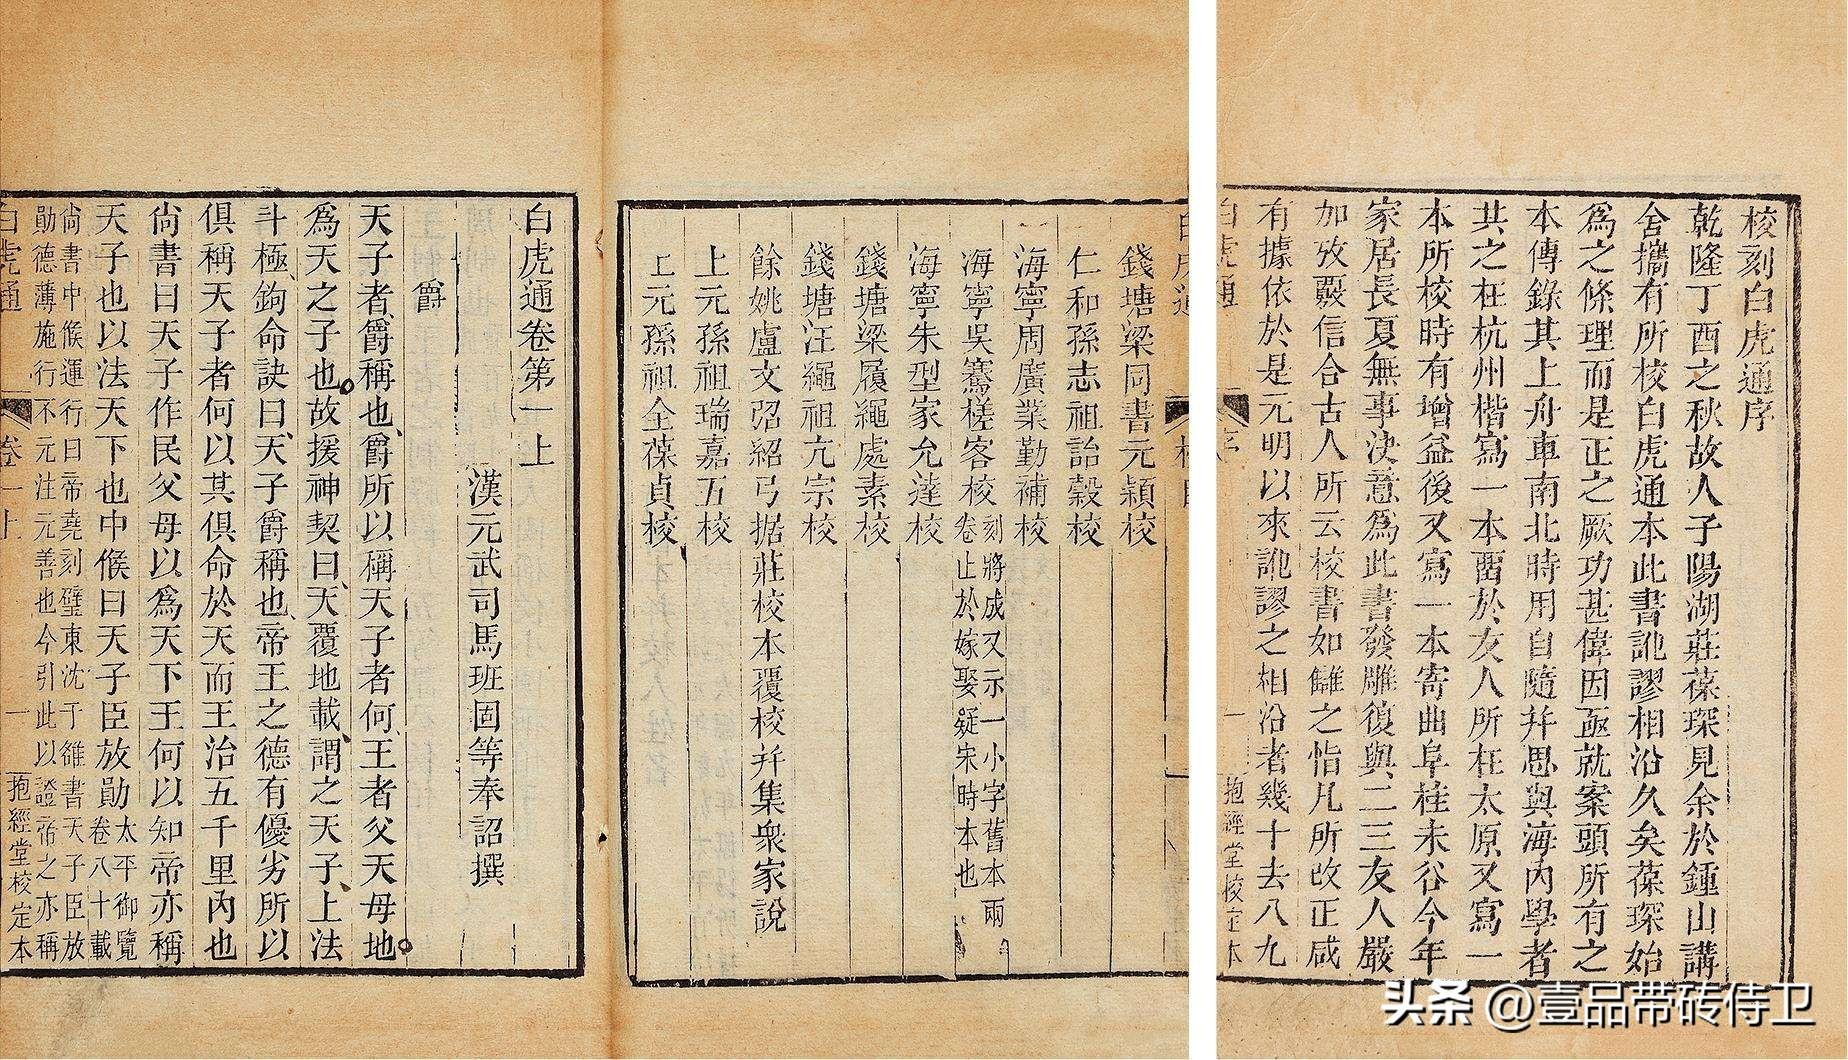 校刻白虎通序
乾隆丁酉之秋故人子陽湖莊葆琛見余於鍾山講
舍攜有所校白虎通本此書訛謬相沿久矣葆琛始
爲之條理而是正之厥功甚偉因亟就案頭所有之
本傳錄其上舟車南北時用自隨并思與海內學者
共之在杭州楷寫一本畱於友人所在太原又寫一
本所校時有增益後又寫一本寄曲阜桂未谷今年
家居長夏無事決意爲此書發雕復與二三友人嚴
加攷覈信合古人所云校書如讎之恉凡所改正咸
有據依於是元明以來訛謬之相沿者幾十去八九
白虎通
序
一
抱經堂校定本
白虎通
校
目
錢塘梁同書元穎校
仁和孫志祖詒穀校
海寧周廣業勤補校
海寧吳騫槎客校
刻將成又示一小字舊本兩
卷止於嫁娶疑宋時本也
海寧朱型家允達校
錢塘梁履繩處素校
錢塘汪繩祖亢宗校
餘姚盧文弨紹弓据莊校本覆校并集衆家說
上元孫祖瑞嘉五校
上元孫祖全葆貞校
白虎通卷第一上
漢元武司馬班固等奉詔撰
爵
天子者爵稱也爵所以稱天子者何王者父天母地
爲天之子也故援神契曰天覆地載謂之天子上法
斗極鉤命訣曰天子爵稱也帝王之德有優劣所以
俱稱天子者何以其俱命於天而王治五千里內也
尙書曰天子作民父母以爲天下王何以知帝亦稱
天子也以法天下也中候曰天子臣放勛
太平御覽
卷八十載
尙書中候運行曰帝堯刻璧東沈于雒書天子臣放
勛德薄施行不元注元善也今引此以證帝之亦稱
白虎通
卷一上
一
抱經堂校定本
头条 @壹品带砖侍卫